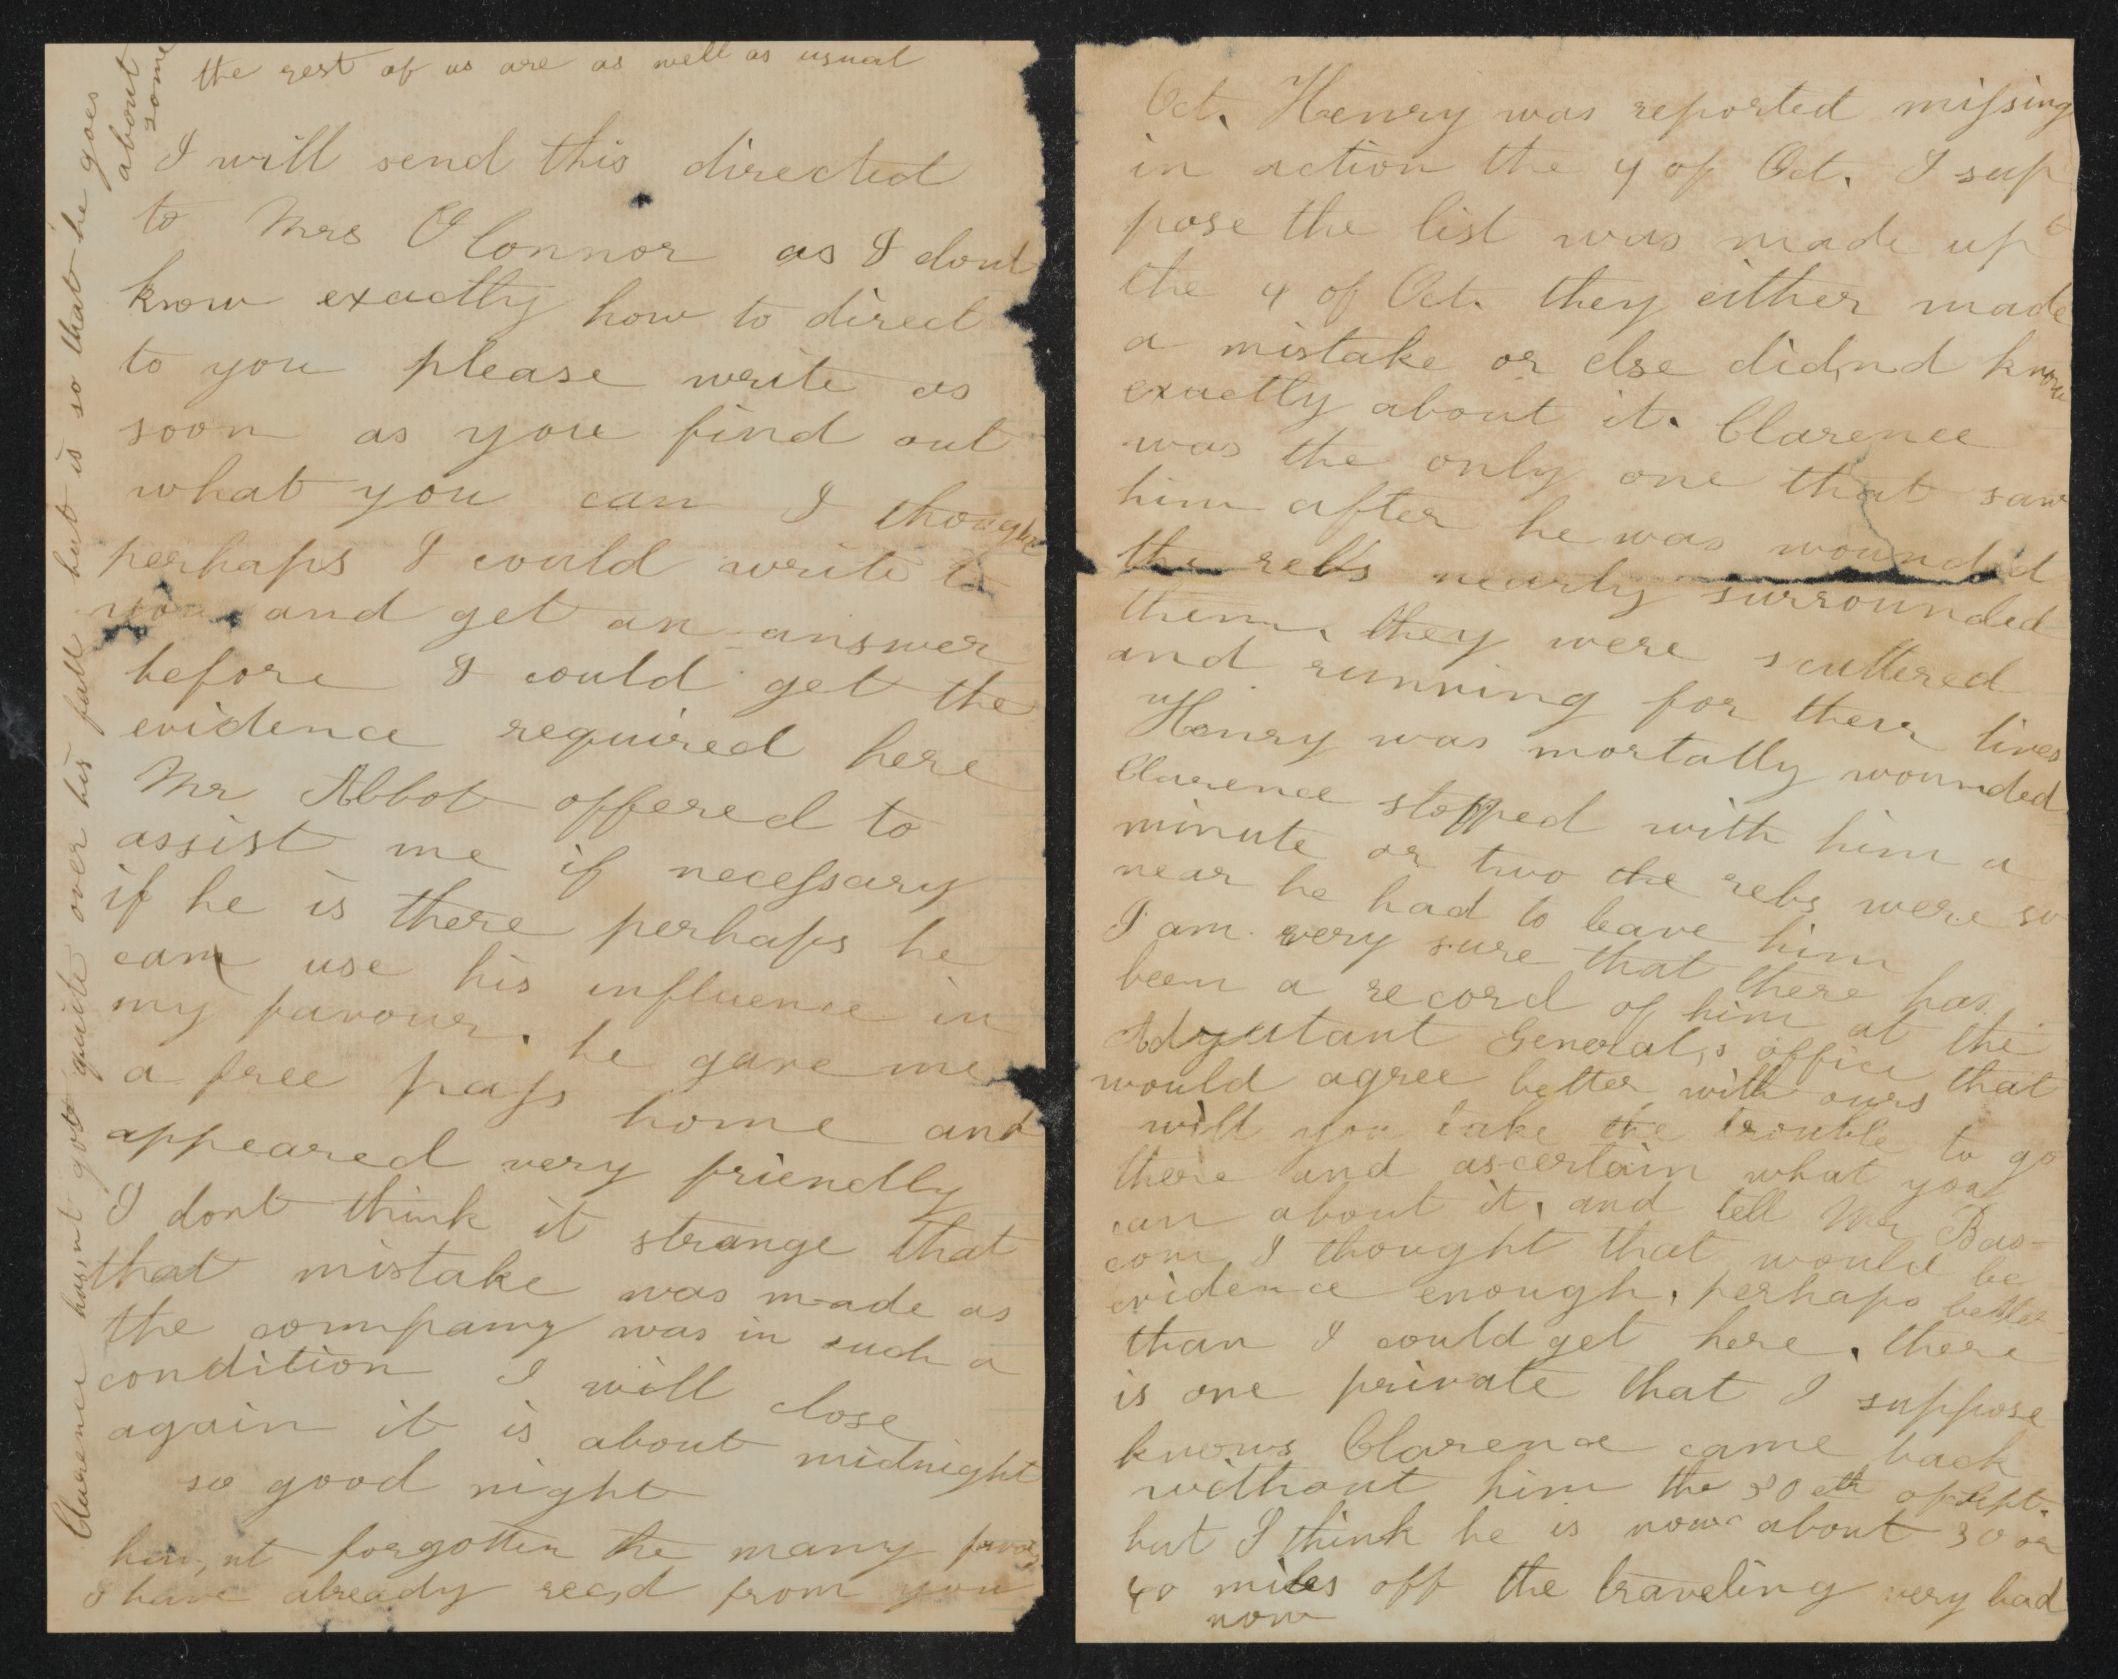 the rest of us are as well as usual
I will send this directed
to Mrs O Connor as I dont
know exactly how to direct
to you please write as
soon as you find out
what you can I though
perhaps I could write to
you and get an answer
before I could get the
evidence required here
Mr Abbot offered to
assist me if necessary
if he is there perhaps he
can use his influence in
my favour. he gave me
a free pass home and
appeared very friendly
I dont think it strange that
that mistake was made as
the compamy was in such a
condition I will close
again it is about midnight
so good night
hav,nt forgotten the many favors
I have already rec,d from you
Clarence has,nt got quite over his fall but is so that he goes
about
some
Oct. Henry was reported missing
in action the 4 of Oct. I sup
pose the list was made up
the 4 of Oct. they either made
a mistake or else did,nd know
exactly about it. Clarence
was the only one that saw
him after he was wounded
the rebs nearly surrounded
them. they were scuttered
and running for their lives
Henry was mortally wounded
Clarence stopped with him a
minute or two the rebs were so
near he had to leave him
I am very sure that there has
been a record of him at the
Adjutant General,s office that
would agree better with ours
will you take the trouble to go
there and ascertain what you
can about it. and tell Mr Bas-
com I thought that would be
evidence enough. perhaps better
than I could get here. there
is one private that I suppose
knows Clarence came back
without him the 30 eth of Sept.
but I think he is now about 30 or
40 miles off the traveling very bad
now